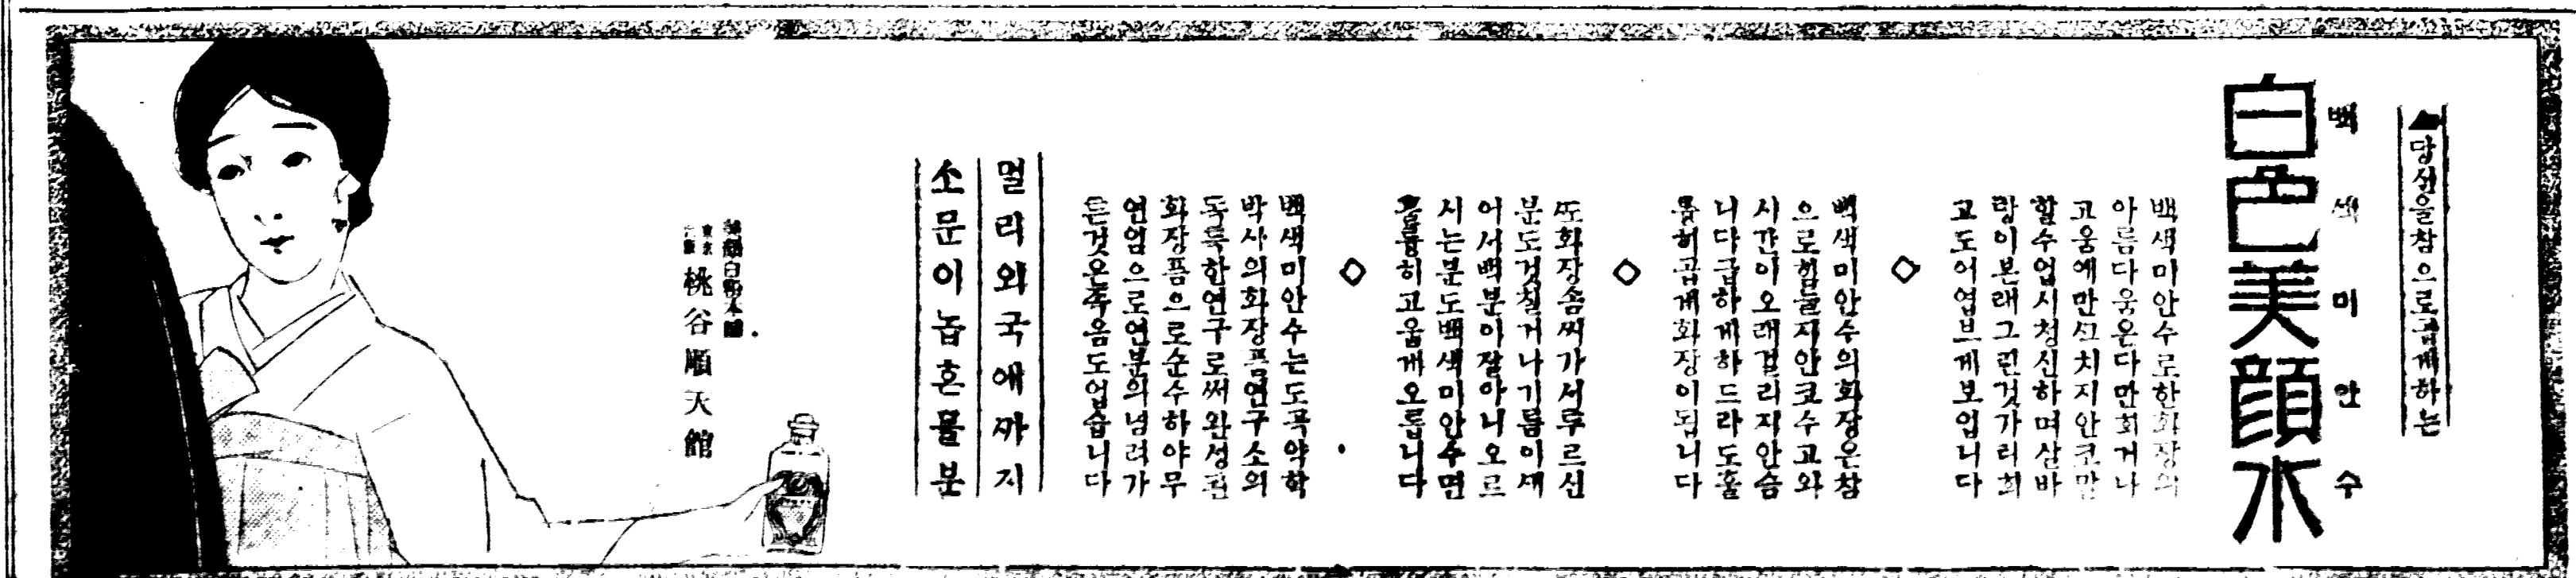 ▲당신을참으로곱게하는
백색미안수
白色美顔水
백색미안수로한화장의
아름다움은다만희거나
고움에만끈치지안코만
할수업시청신하며살바
랑이본래그런것가리희
고도어엽브게보입니다
◇
백색미안수의화장은참
으로힘들지안코수고와
시간이오래걸리지안슴
니다급하게하드라도훌
륭히곱게화장이됩니다
◇
또화장솜씨가서투르신
분도것칠거나기름이새
어서백분이잘아니오르
시는분도백색미안수면
훌륭히고웁게오릅니다
◇
백색미안수는도곡약학
박사의화장품연구소의
독특한연구로써완성된
화장품으로순수하야무
연임으로연분의념려가
든것은죽음도업습니다
멀리외국애까지
소문이놉흔물분
美顔白粉本舖
東京
大阪
桃谷順天館